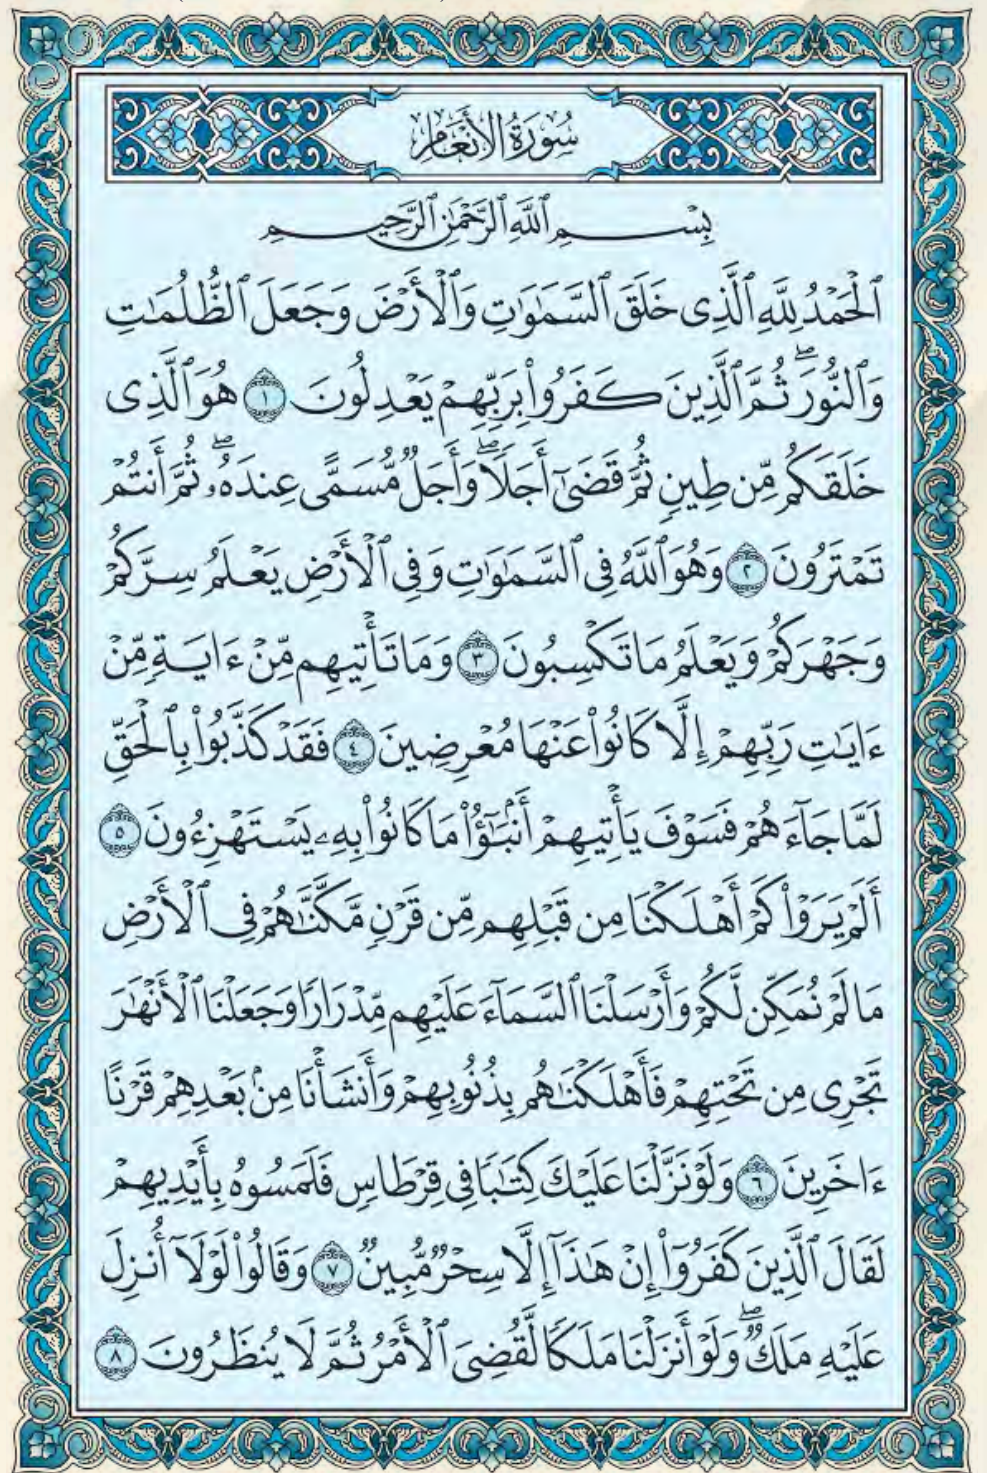 سُورَةُ الأَنْعَامِ
بِسْمِ ٱللَّهِ ٱلرَّحْمَٰنِ ٱلرَّحِيمِ
ٱلْحَمْدُ لِلَّهِ ٱلَّذِى خَلَقَ ٱلسَّمَٰوَٰتِ وَٱلْأَرْضَ وَجَعَلَ ٱلظُّلُمَٰتِ
وَٱلنُّورَۖ ثُمَّ ٱلَّذِينَ كَفَرُوا۟ بِرَبِّهِمْ يَعْدِلُونَ ١ هُوَ ٱلَّذِى
خَلَقَكُم مِّن طِينٍ ثُمَّ قَضَىٰٓ أَجَلًاۖ وَأَجَلٌ مُّسَمًّى عِندَهُۥۖ ثُمَّ أَنتُمْ
تَمْتَرُونَ ٢ وَهُوَ ٱللَّهُ فِى ٱلسَّمَٰوَٰتِ وَفِى ٱلْأَرْضِ يَعْلَمُ سِرَّكُمْ
وَجَهْرَكُمْ وَيَعْلَمُ مَا تَكْسِبُونَ ٣ وَمَا تَأْتِيهِم مِّنْ ءَايَةٍ مِّنْ
ءَايَٰتِ رَبِّهِمْ إِلَّا كَانُوا۟ عَنْهَا مُعْرِضِينَ ٤ فَقَدْ كَذَّبُوا۟ بِٱلْحَقِّ
لَمَّا جَآءَهُمْ فَسَوْفَ يَأْتِيهِمْ أَنۢبَٰٓؤُا۟ مَا كَانُوا۟ بِهِۦ يَسْتَهْزِءُونَ ٥
أَلَمْ يَرَوْا۟ كَمْ أَهْلَكْنَا مِن قَبْلِهِم مِّن قَرْنٍ مَّكَّنَّٰهُمْ فِى ٱلْأَرْضِ
مَا لَمْ نُمَكِّن لَّكُمْ وَأَرْسَلْنَا ٱلسَّمَآءَ عَلَيْهِم مِّدْرَارًا وَجَعَلْنَا ٱلْأَنْهَٰرَ
تَجْرِى مِن تَحْتِهِمْ فَأَهْلَكْنَٰهُم بِذُنُوبِهِمْ وَأَنشَأْنَا مِنۢ بَعْدِهِمْ قَرْنًا
ءَاخَرِينَ ٦ وَلَوْ نَزَّلْنَا عَلَيْكَ كِتَٰبًا فِى قِرْطَاسٍ فَلَمَسُوهُ بِأَيْدِيهِمْ
لَقَالَ ٱلَّذِينَ كَفَرُوٓا۟ إِنْ هَٰذَآ إِلَّا سِحْرٌ مُّبِينٌ ٧ وَقَالُوا۟ لَوْلَآ أُنزِلَ
عَلَيْهِ مَلَكٌۖ وَلَوْ أَنزَلْنَا مَلَكًا لَّقُضِىَ ٱلْأَمْرُ ثُمَّ لَا يُنظَرُونَ ٨